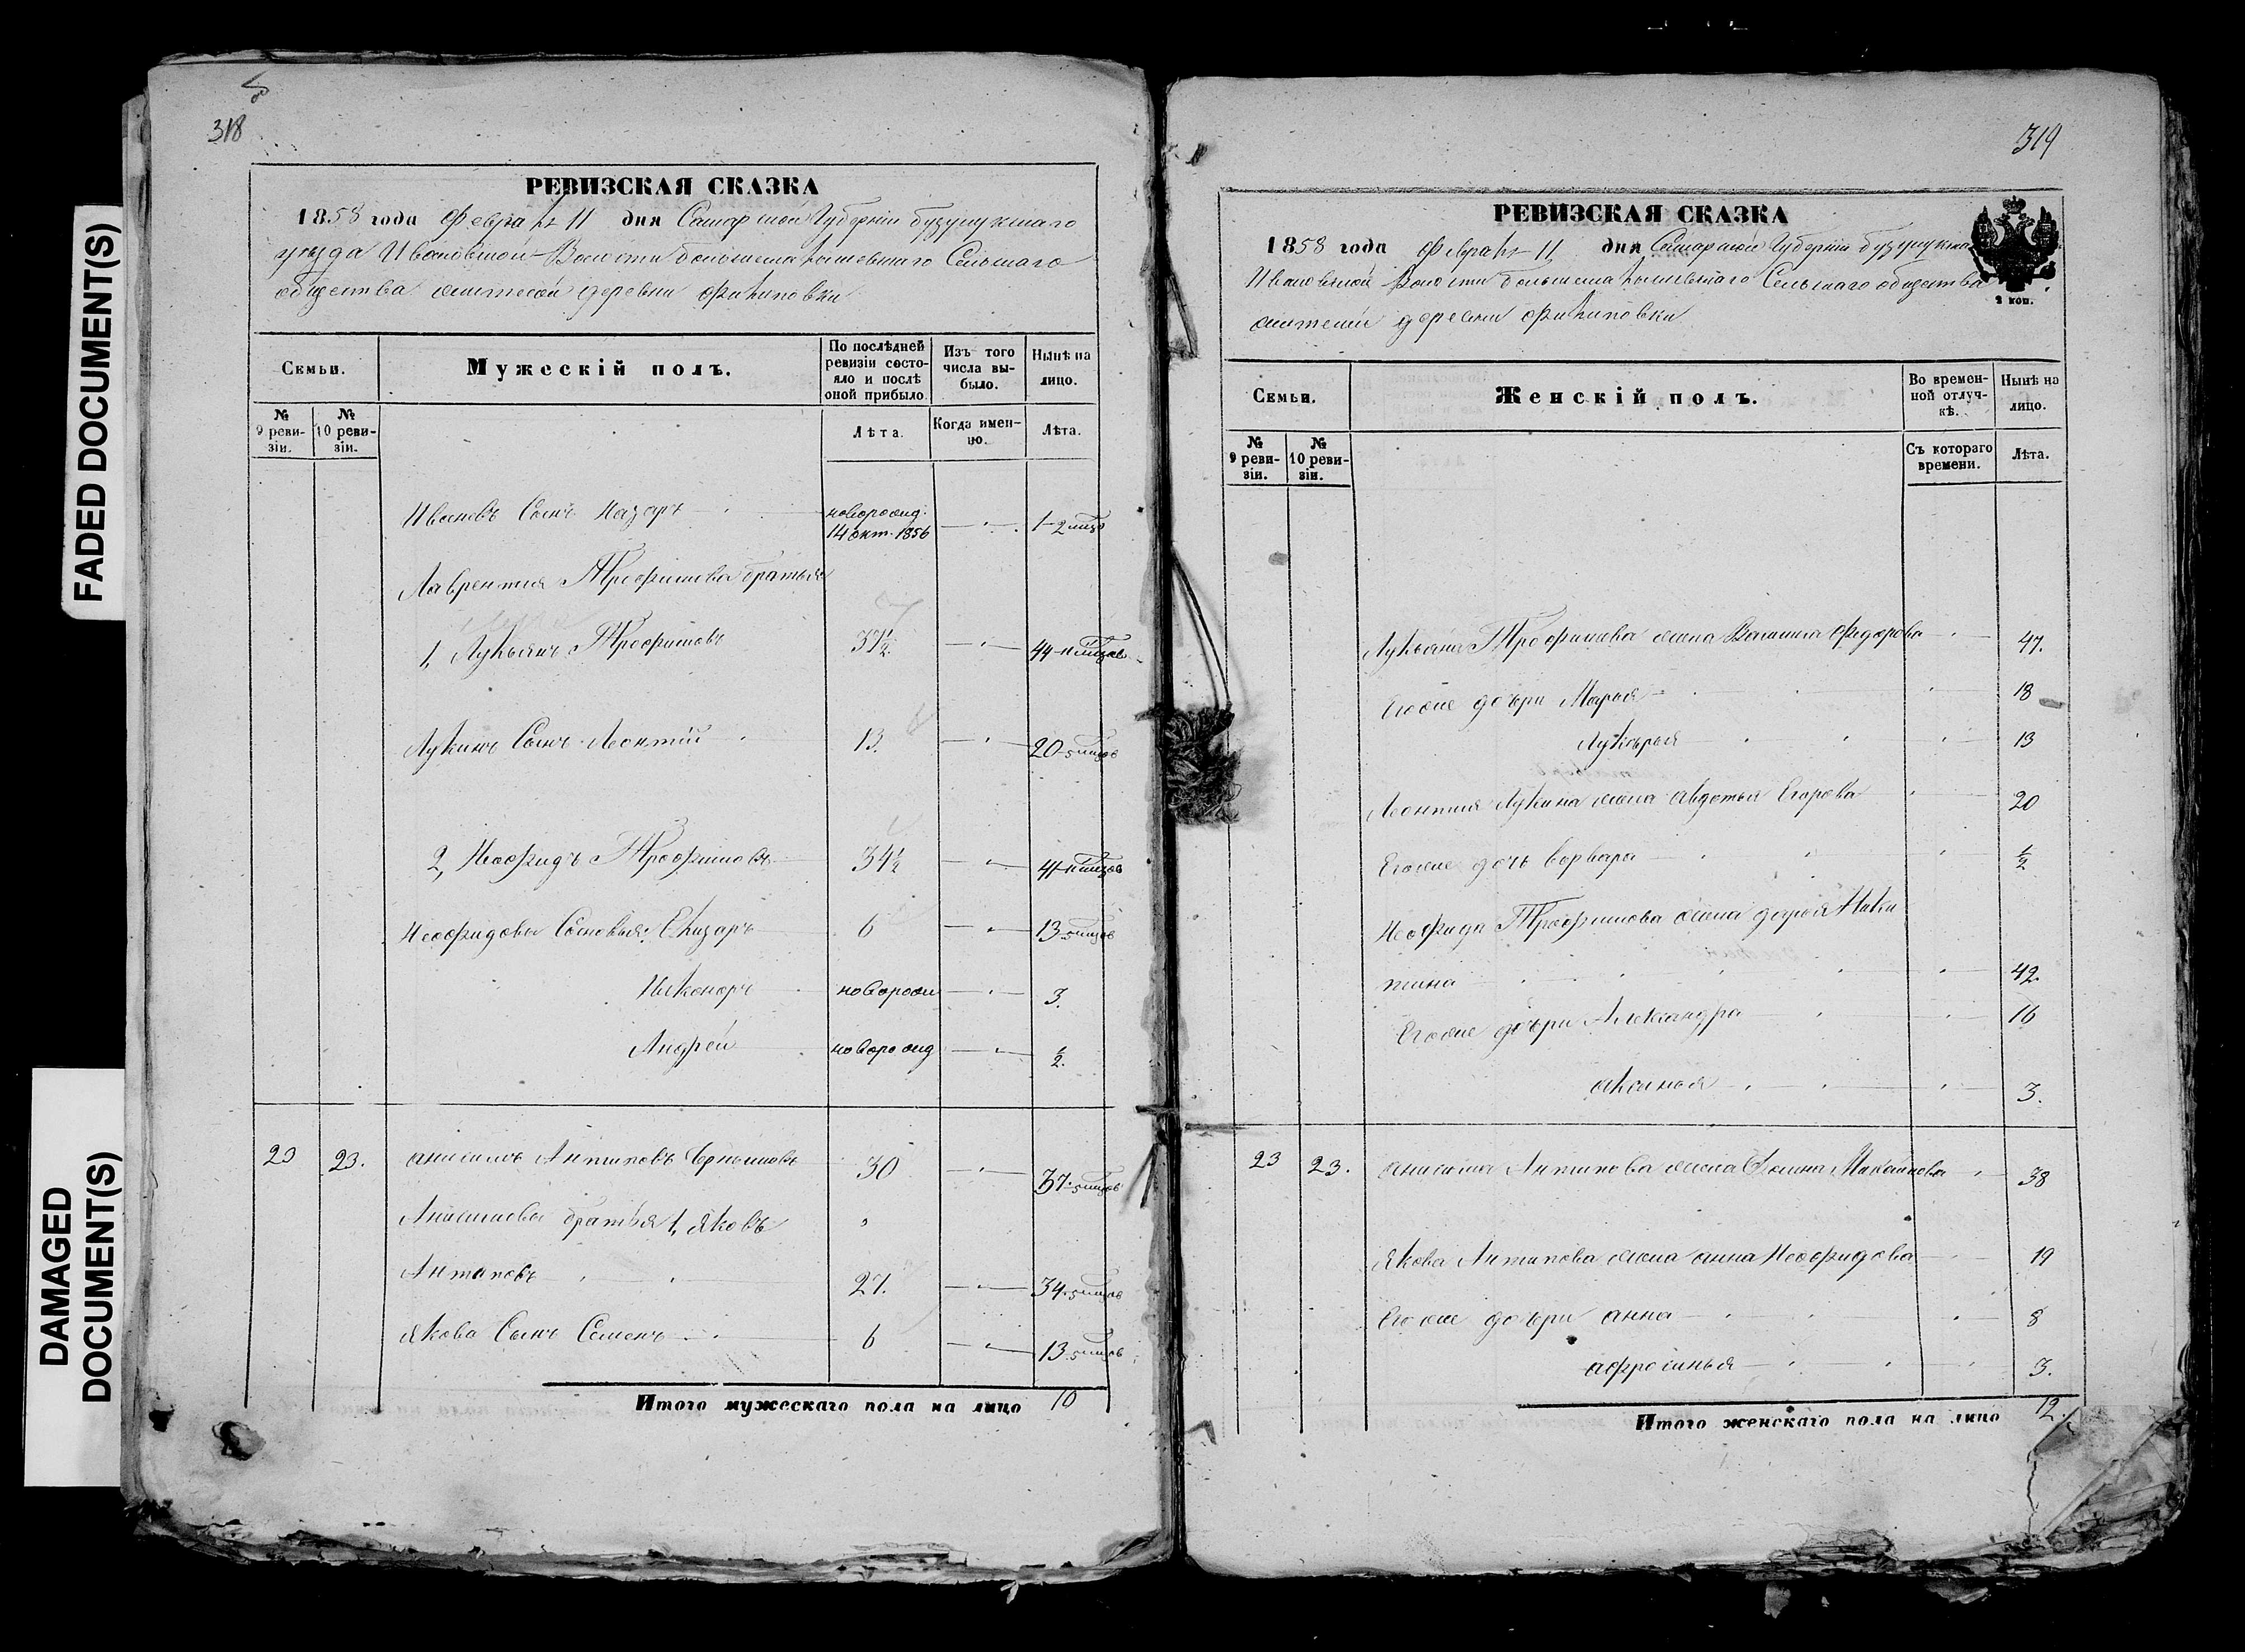 FADED DOCUMENT(S)
DAMAGED
DOCUMENT(S)
318
РЕВИЗСКАЯ СКАЗКА
1858 года Февраля 11 дня Самарской Губерніи бузулукскаго
уезда Ивановской Волости Сельскаго
общества деревни Филиповки
Семьи.
Мужескій полъ.
По послѣдней ревизіи состояло и послѣ оной прибыло.
Изъ того числа выбыло.
Нынѣ на лицо.
№ 9 ревизіи.
№ 10 ревизіи.
Лѣта.
Когда именно.
Лѣта.
Ивановъ Сынъ Назаръ новорожд. 14 окт. 1856 1-2 мѣся
Лаврентия Трофимова братья
1, Лукьянъ Трофимовъ 37½
Лукинъ Сынъ Леонтій 13. 20-5 мцов
2, Неофидъ Трофимовъ 34½
Неофидовы Сыновья: Елизаръ 6 13-5 мцов
Никоноръ новорож 3.
Андрей новорожд ½.
23 23. анисимъ Антиповъ 30 37-5 мцов
Анисимовы братья 1, Яковъ
Антиповъ 27. 34-5 мцов
Якова Сынъ Семенъ 6 13-5 мцов
Итого мужескаго пола на лицо 10
319
РЕВИЗСКАЯ СКАЗКА
1858 года Февраля 11 дня Самарской Губерніи
Ивановской Волости Сельскаго общества
деревни Филиповки
2 коп.
Семьи.
Женскій полъ.
Во временной отлучкѣ.
Нынѣ на лицо.
№ 9 ревизіи.
№ 10 ревизіи.
Съ котораго времени.
Лѣта.
Лукьяна Трофимова жена Федорова 47.
Егоже дочери Марья 18
Лукерья 13
Леонтия Лукина жена Авдотья Егорова 20
Егоже дочь Варвара ½
Неофида Трофимова жена дарья Ники
тина 42.
Егоже дочери Александра 16
аксинья 3.
23 23. анисима Антипова жена 38
Якова Антипова жена анна Неофидова 19
Егоже дочери анна 8
афросинья 3.
Итого женскаго пола на лицо 12.